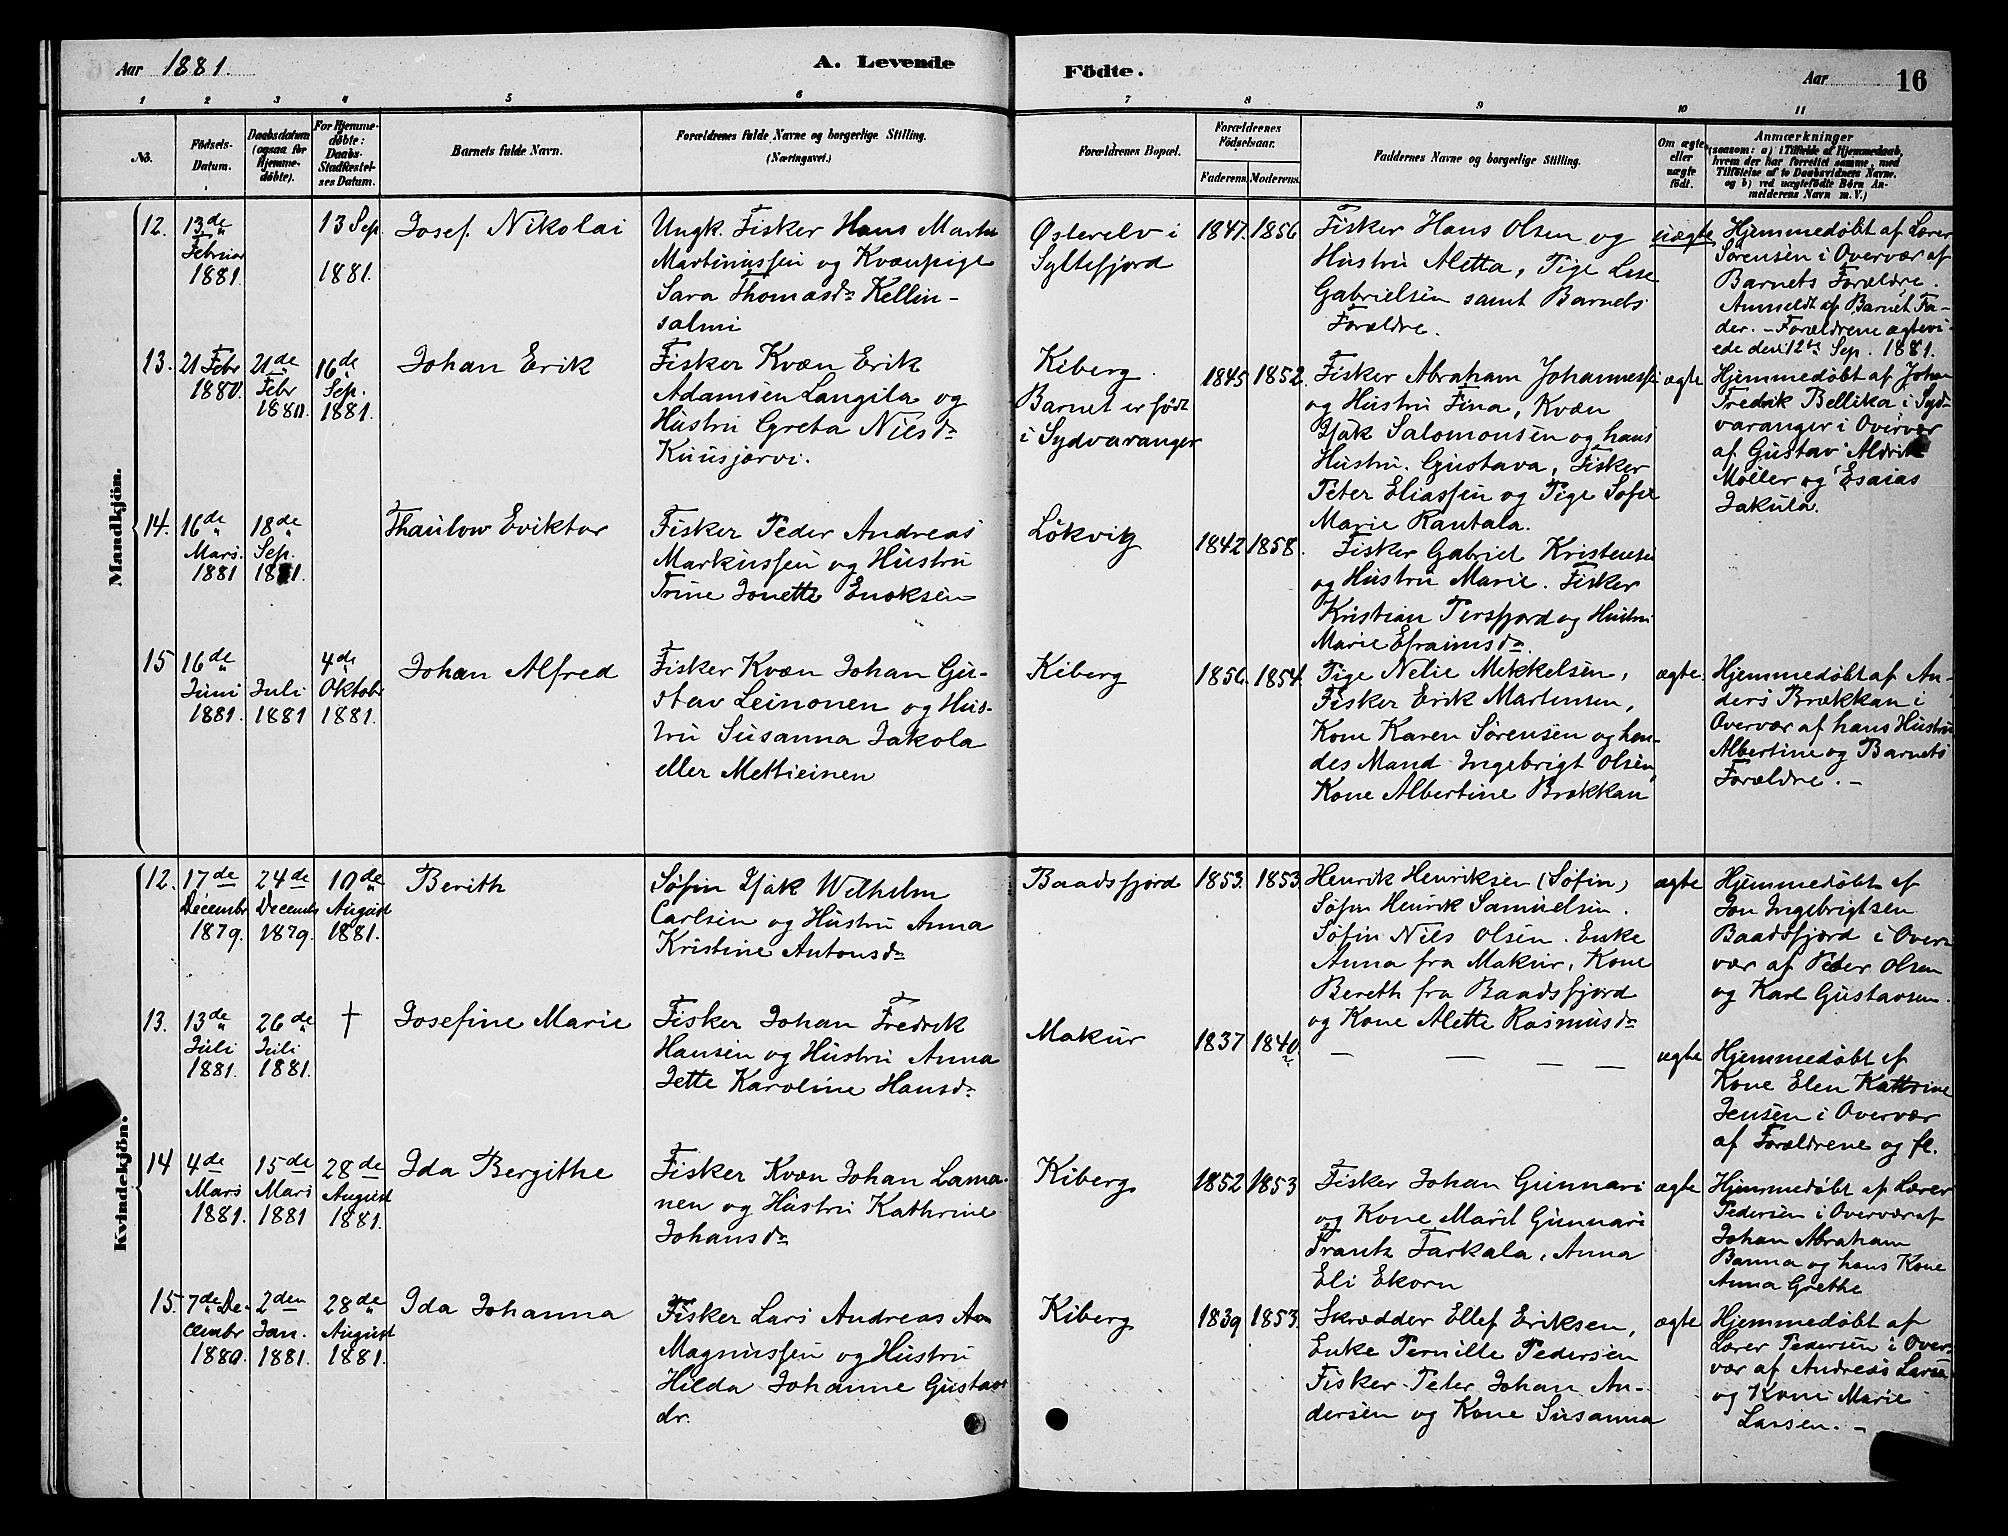 Aar 1881.
A. Levende
Födte.
Aar 16
1 2 3 4 5 6 7 8 9 10 11
No.
Födsels-
Datum.
Daabsdatum
(ogsaa for
Hjemme-
døbte).
For Hjemme-
døbte:
Daabs-
Stadfæstel-
ses Datum.
Barnets fulde Navn.
Forældrenes fulde Navne og borgerlige Stilling.
(Næringsvei.)
Forældrenes Bopæl.
Forældrenes
Födselsaar.
Faderens. Moderens.
Faddernes Navne og borgerlige Stilling.
Om ægte
eller
uægte
födt.
Anmærkninger
(saasom: a) i Tilfælde af Hjemmedaab,
hvem der har forrettet samme, med
Tilföielse af to Daabsvidners Navne.
og b) ved uægtefödte Börn An-
melderens Navn m. V.)
Mandkjön.
12.
13de
Februar
1881.
13 Sep.
1881.
Josef Nikolai
Ungk. Fisker Hans Martin
Martinussen og Kvænpige
Sara Thomasdr Kellin-
salmi
Østerelv i
Syltefjord
1847. 1856
Fisker Hans Olsen og
Hustru Aletta, Pige Lise
Gabrielsen samt Barnets
Forældre.
uægte
Hjemmedøbt af Lærer
Sørensen i Overvær af
Barnets Forældre.
Anmeldt af Barnet Fa-
der. - Forældrene ægtevi-
ede den 12te Sep. 1881.
13.
21 Febr
1880.
21de
Febr
1880.
16de
Sep.
1881.
Johan Erik
Fisker Kvæn Erik
Adamsen Langila og
Hustru Greta Nilsdr
Kuusjärvi.
Kiberg.
Barnet er født
i Sydvaranger
1845 1852.
Fisker Abraham Johannessen
og Hustru Fina, Kvæn
Isak Salomonsen og hans
Hustru. Gustava, Fisker
Peter Eliassen og Pige Sofie
Marie Rautala.
ægte
Hjemmedøbt af Johan
Fredrik Bellika i Syd-
varanger i Overvær
af Gustav Aldrik
Møller og Esaias
Jakula.
14.
16de
Mars.
1881
18de
Sep.
1881.
Thaulow Eviktor
Fisker Peder Andreas
Markussen og Hustru
Trine Jonette Enoksen
Løkvig
1842 1858.
Fisker Gabriel Kristensen
og Hustru Marie. Fisker
Kristian Persfjord og Hustru
Marie Efraimsdr.
15
16de
Juni
1881.
Juli
1881
4de
Oktobr
1881.
Johan Alfred
Fisker Kvæn Johan Gu-
stav Leinonen og Hus-
tru Susanna Jakola
eller Mettieinen
Kiberg
1856. 1854.
Pige Nelie Mikkelsen,
Fisker Erik Martensen,
Kone Karen Sørensen og hen-
des Mand Ingebrigt Olsen,
Kone Albertine Brækkan
ægte.
Hjemmedøbt af An-
ders Brækkan i
Overvær af hans Hustru
Albertine og Barnets
Forældre. -
Kvindekjön.
12.
17de
Decembr
1879.
24de
Decembr
1879.
10de
August
1881.
Berith
Søfin Isak Wilhelm
Carlsen og Hustru Anna
Kristine Antonsdr
Baadsfjord
1853. 1853.
Henrik Henriksen (Søfin)
Søfin Henrik Samuelsen.
Søfin Nils Olsen. Enke
Anna fra Makur, Kone
Bereth fra Baadsfjord
og Kone Alette Rasmusdr
ægte
Hjemmedøbt af
Jon Ingebrigtsen
Baadsfjord i Over-
vær af Peder Olsen
og Karl Gustavsen.
13.
13de
Juli
1881.
26de
Juli
1881.
†
Josefine Marie
Fisker Johan Fredrik
Hansen og Hustru Anna
Jette Karoline Hansdr
Makur
1837 1840.
— — — —
ægte
Hjemmedøbt af
Kone Elen Kathrine
Jensen i Overvær
af Forældrene og fl.
14
4de
Mars
1881.
15de
Mars
1881
28de
August
1881.
Ida Bergithe
Fisker Kvæn Johan Lama-
nen og Hustru Kathrine
Johansdr
Kiberg
1852 1853
Fisker Johan Gunnari
og Kone Maril Gunnari
Frants Tarkala, Anna
Eli Ekorn
ægte
Hjemmedøbt af Lærer
Pedersen i Overvær af
Johan Abraham
Banna og hans Kone
Anna Grethe
15.
7de De-
cembr
1880.
2den
Jan.
1881.
28de
August
1881.
Ida Johanna
Fisker Lars Andreas
Magnussen og Hustru
Hilda Johanne Gustavs
dr.
Kiberg
1839 1853.
Skrædder Ellef Eriksen,
Enke Pernille Pedersen
Fisker Peter Johan An-
dersen og Kone Susanna
ægte
Hjemmedøbt af
Lærer Pedersen i Over-
vær af Andreas Larsen
og Kone Marie
Larsen. -